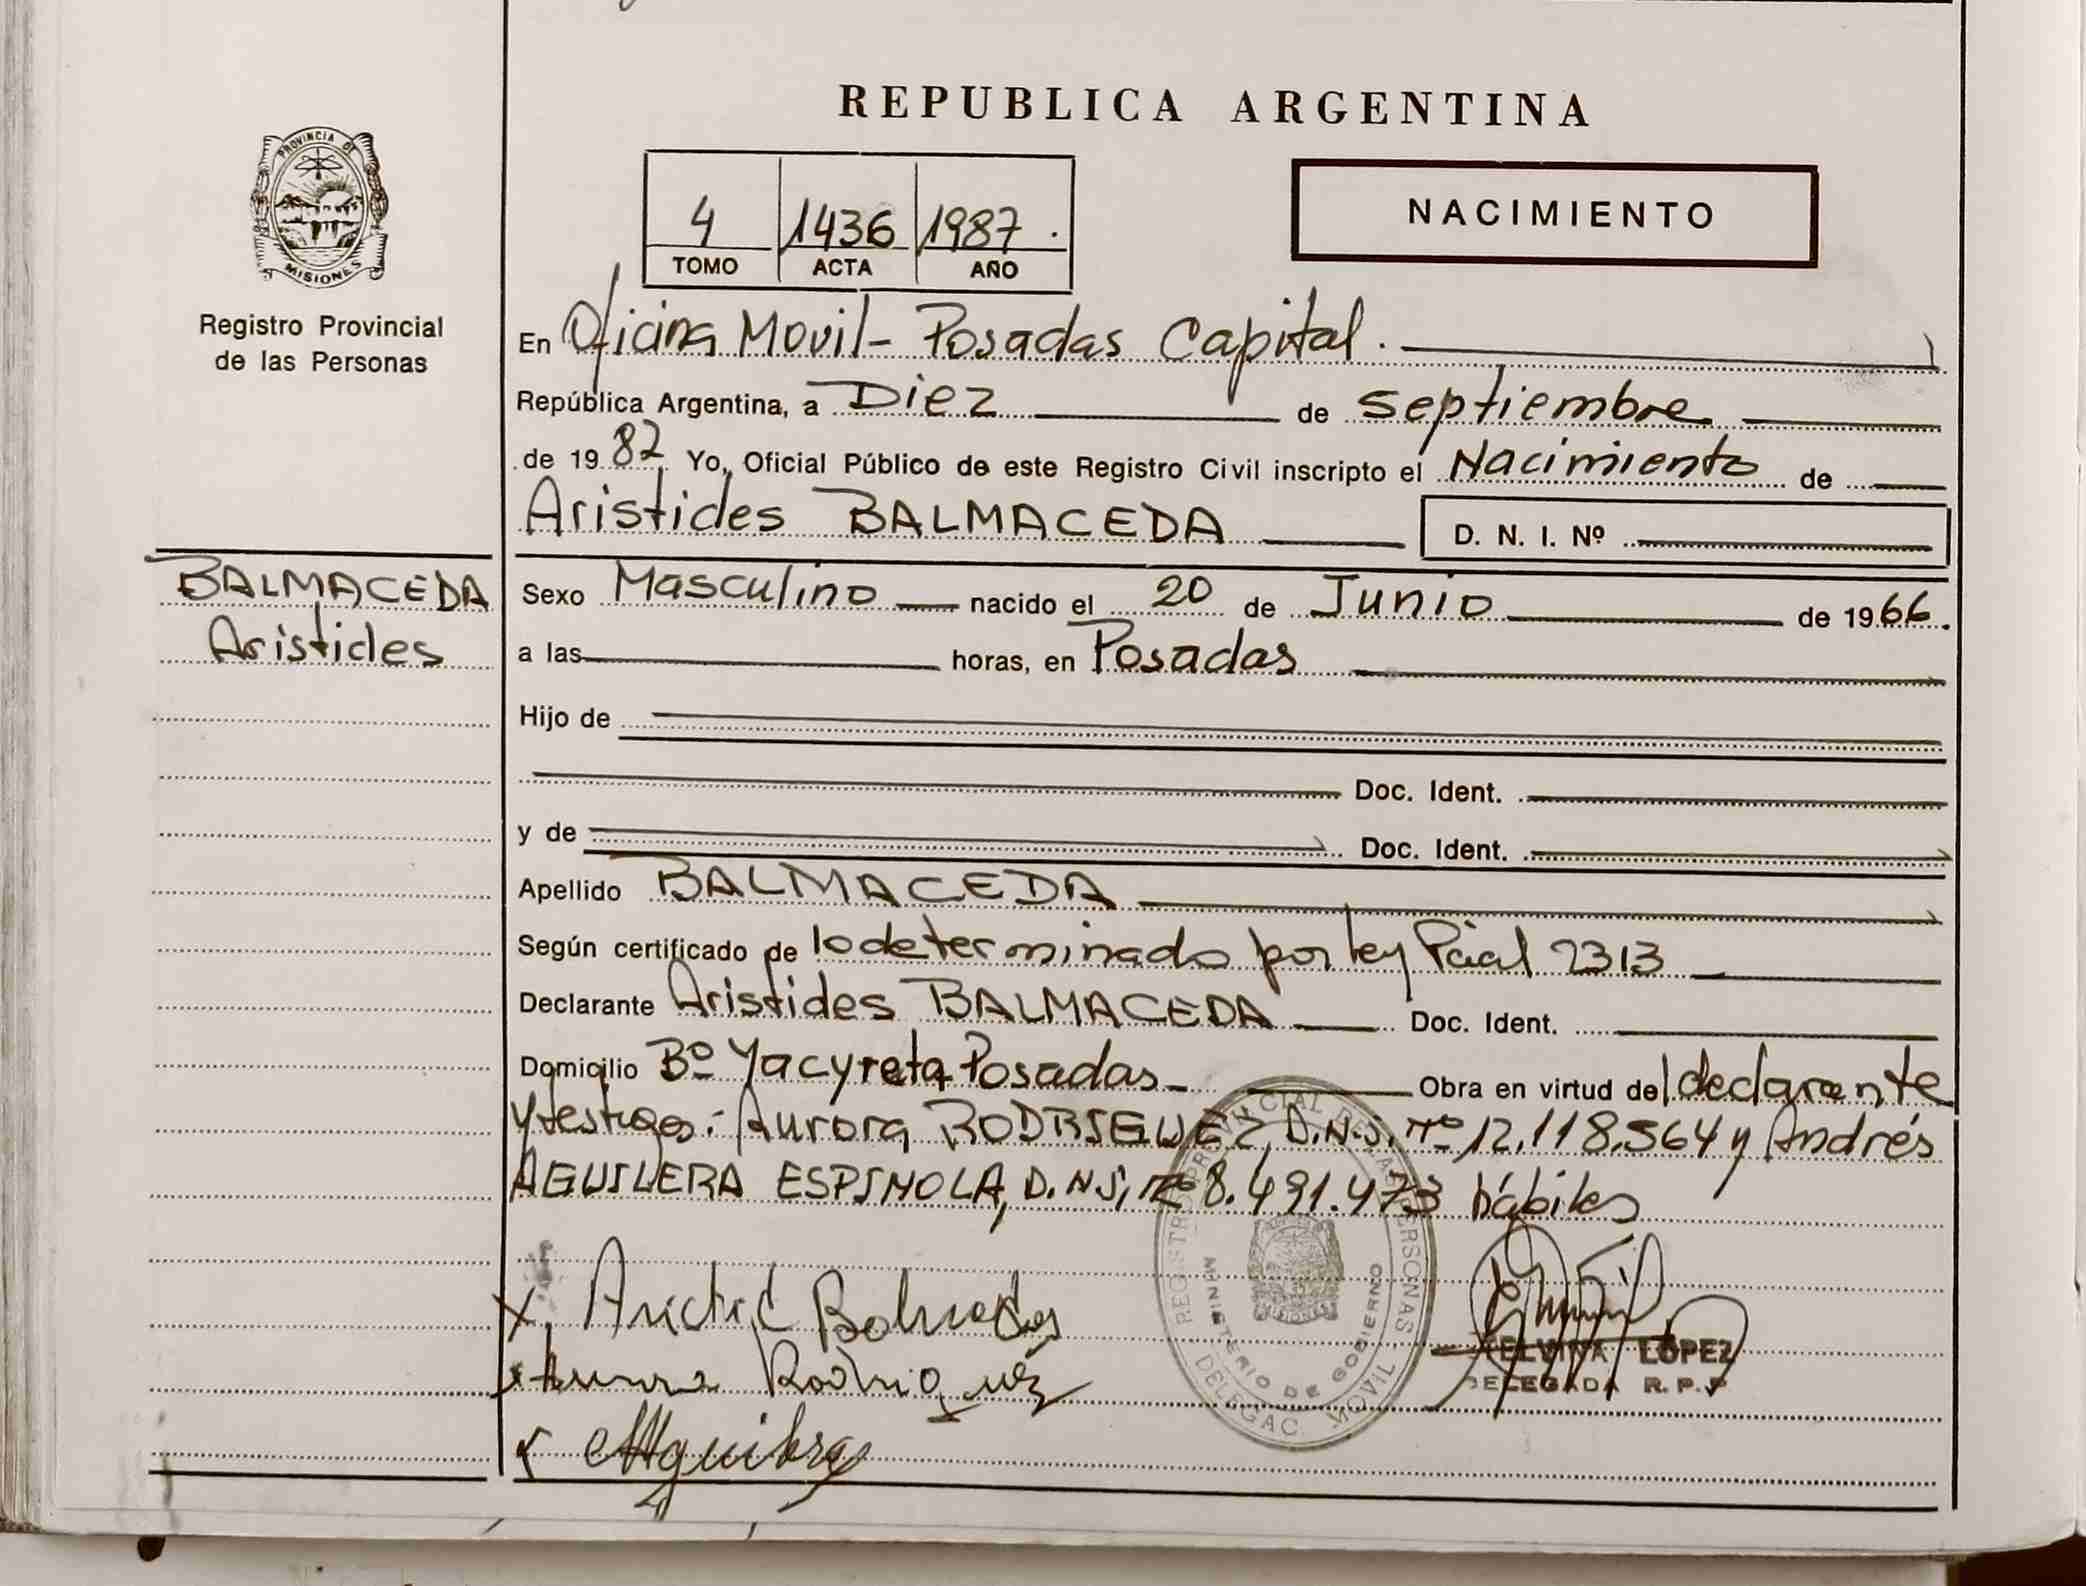 REPUBLICA ARGENTINA
PROVINCIA DE
MISIONES
Registro Provincial
de las Personas
4 1436 1987.
TOMO ACTA AÑO
NACIMIENTO
En Oficina Movil - Posadas Capital.
República Argentina, a Diez de Septiembre
de 19 87 Yo, Oficial Público de este Registro Civil inscripto el Nacimiento de
Aristides BALMACEDA D. N. I. Nº
BALMACEDA
Aristides
Sexo Masculino nacido el 20 de Junio de 1966.
a las horas, en Posadas
Hijo de
Doc. Ident.
y de Doc. Ident.
Apellido BALMACEDA
Según certificado de lo determinado por ley Pcial 2313
Declarante Aristides BALMACEDA Doc. Ident.
Domicilio Bº Yacyreta Posadas Obra en virtud del declarante
y testigos: Aurora RODRIGUEZ, D.N.I. Nº 12.118.564 y Andrés
AGUILERA ESPINOLA, D.N.I, Nº 8.491.473 hábiles
REGISTRO PROVINCIAL DE LAS PERSONAS
MINISTERIO DE GOBIERNO
DELEGAC. MOVIL
Aurora Rodriguez
ELVIRA LOPEZ
DELEGADA R.P.P